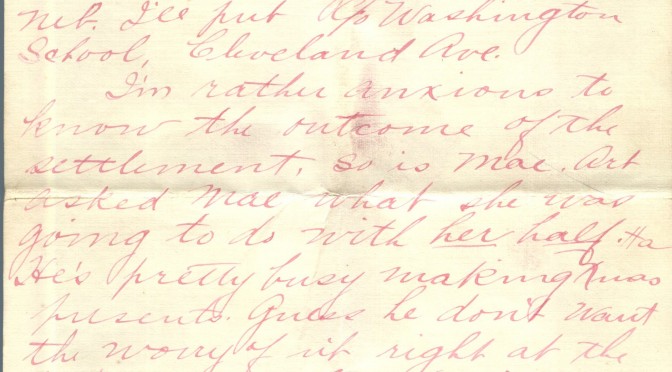 net. I'll put c/o Washington
School, Cleveland Ave.
I'm rather anxious to
know the outcome of the
settlement, so is Mae. Art
asked Mae what she was
going to do with her half. Ha
He's pretty busy making Xmas
presents. Guess he don't want
the worry of it right at the